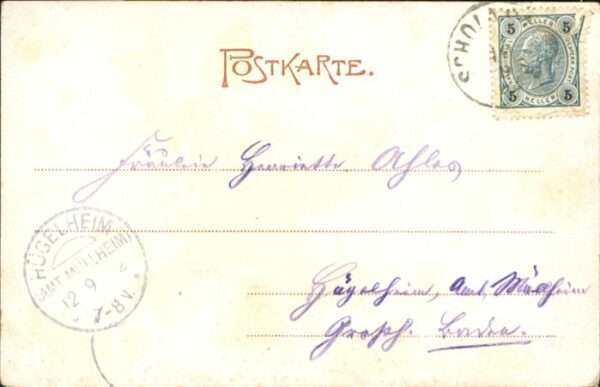 POSTKARTE.
SCHOL
5 HELLER 5
5 HELLER 5
Fräulein Henriette Ahles
HÜGELHEIM
(AMT MÜLLHEIM)
12 9
7-8V.
Hügelheim, Amt. Müllheim
Grossh. Baden.